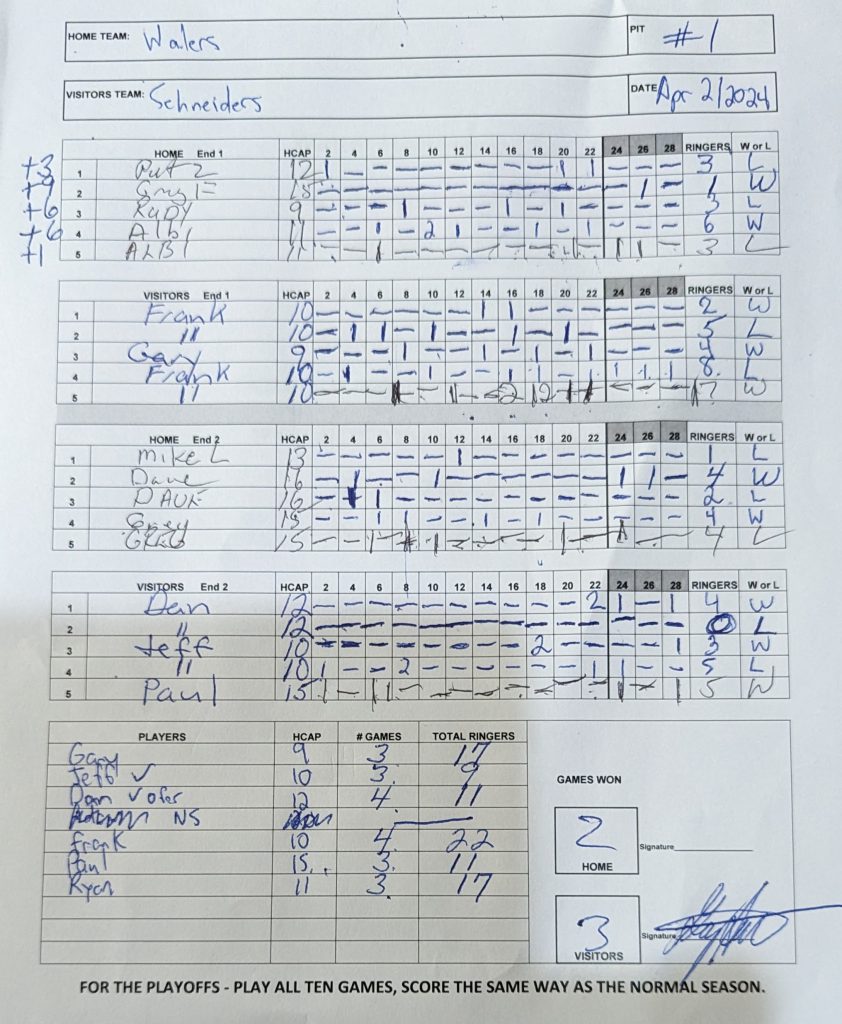 HOME TEAM: Walers PIT #1
VISITORS TEAM: Schneiders DATE Apr 2/2024
HOME End 1 HCAP 2 4 6 8 10 12 14 16 18 20 22 24 26 28 RINGERS W or L
+3 1 Put 2 12 1 - - - - - - - - 1 1 - - - 3 L
+9 2 Greg F 15 - - - - - - - - - - - - 1 - 1 W
+6 3 Rudy 9 - - - 1 - - - 1 - 1 - - - - 3 L
+6 4 Albi 11 - - 1 - 2 1 - - 1 - 1 - - - 6 W
+1 5 ALBI 11 - - 1 - - - - - - - - 1 1 - 3 L
VISITORS End 1 HCAP 2 4 6 8 10 12 14 16 18 20 22 24 26 28 RINGERS W or L
1 Frank 10 - - - - - - 1 1 - - - - - - 2 W
2 " 10 - 1 1 - 1 - - 1 - 1 - - - - 5 L
3 Gary 9 - - - 1 - - 1 - 1 - 1 - - - 4 W
4 Frank 10 - 1 - - 1 - - 1 1 - 1 1 1 1 8 L
5 " 10 W
HOME End 2 HCAP 2 4 6 8 10 12 14 16 18 20 22 24 26 28 RINGERS W or L
1 Mike L 13 - - - - - 1 - - - - - - - - 1 L
2 Dave 16 - 1 - - 1 - - - - - - 1 1 - 4 W
3 DAVE 16 - 1 1 - - - - - - - - - - - 2 L
4 Greg 15 - - 1 1 - - 1 - 1 - - - - - 4 W
5 GREG 15 4 L
VISITORS End 2 HCAP 2 4 6 8 10 12 14 16 18 20 22 24 26 28 RINGERS W or L
1 Dan 12 - - - - - - - - - - 2 1 - 1 4 W
2 " 12 - - - - - - - - - - - - - - 0 L
3 Jeff 10 - - - - - - - - 2 - - - - 1 3 W
4 " 10 1 - - 2 - - - - - - 1 1 - - 5 L
5 Paul 15 1 - 1 1 - - - - - - - 1 - 1 5 W
PLAYERS HCAP # GAMES TOTAL RINGERS
Gary 9 3 17
Jeff ✓ 10 3. 9
Dan ✓ ofer 12 4. 11
NS
Frank 10 4. 22
Paul 15. 3. 11
Ryan 11 3. 17
GAMES WON
2
HOME
Signature
3
VISITORS
Signature
FOR THE PLAYOFFS - PLAY ALL TEN GAMES, SCORE THE SAME WAY AS THE NORMAL SEASON.